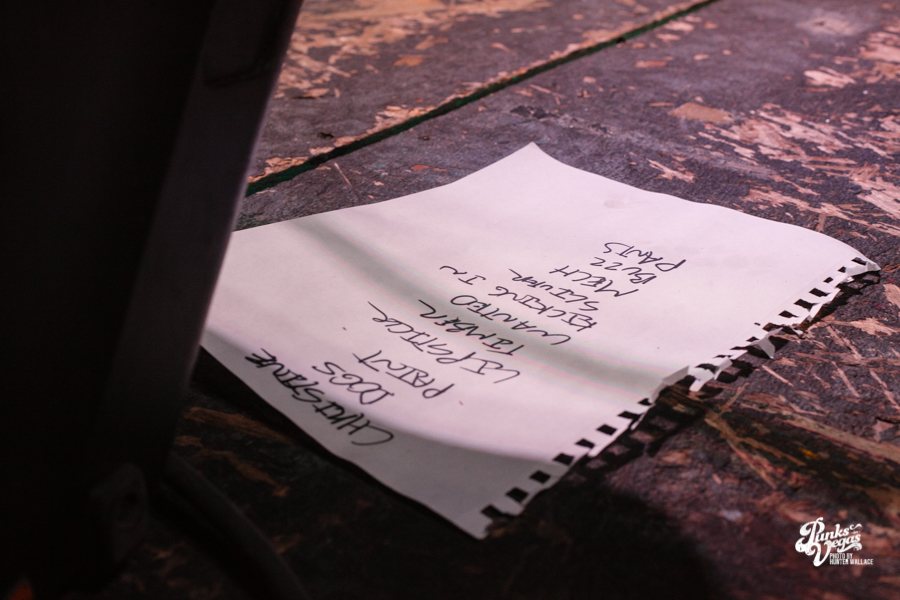 CHRISTINE
DOGS
PAINT
LIPSTICK
TIMBER
WANTED
KICKING IN
MECH
BUZZ
PANTS
Punks in
Vegas
PHOTO BY
HUNTER WALLACE